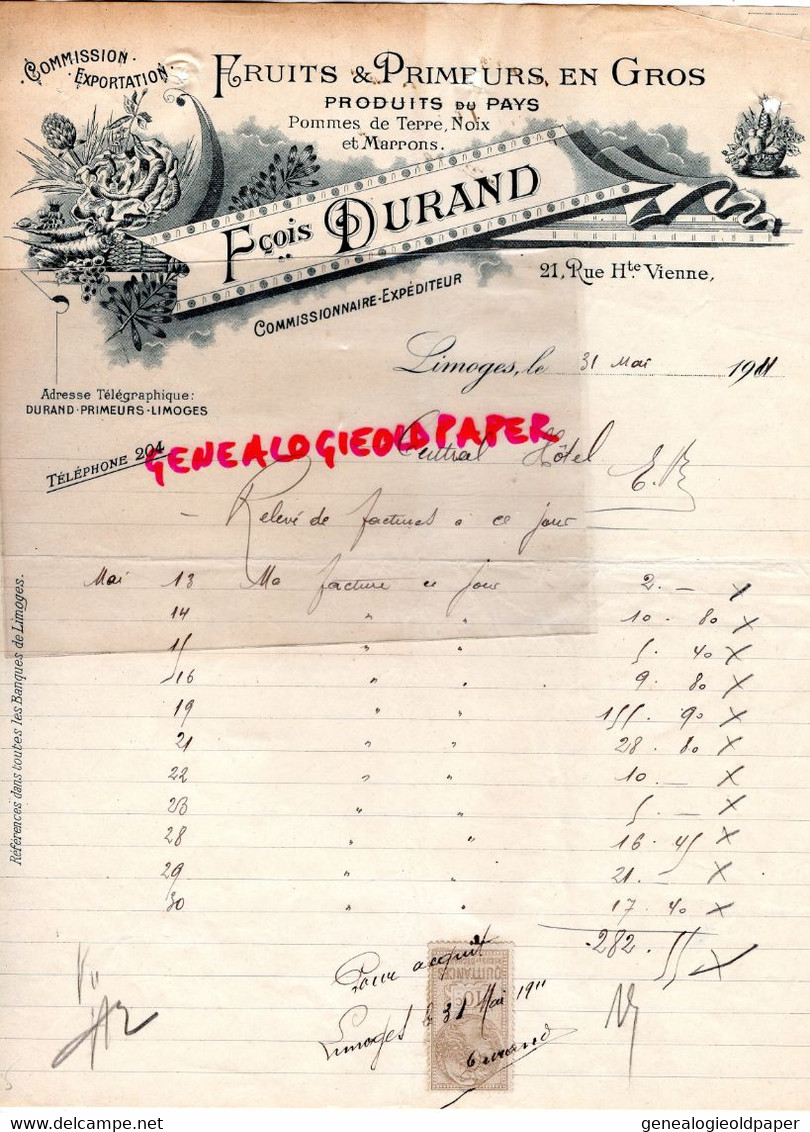 COMMISSION
EXPORTATION
FRUITS & PRIMEURS EN GROS
PRODUITS DU PAYS
Pommes de Terre, Noix
et Marrons.
Fçois DURAND
21, Rue Hte Vienne,
COMMISSIONNAIRE-EXPÉDITEUR
Limoges, le 31 Mai 1911
Adresse Télégraphique:
DURAND-PRIMEURS-LIMOGES
TÉLÉPHONE 204
GENEALOGIEOLDPAPER
Central Hôtel
Relevé de factures a ce jour
Références dans toutes les Banques de Limoges.
Mai 13 Ma facture ce jour 2. — X
14 " " 10. 80 X
15 " " 5. 40 X
16 " " 9. 80 X
19 " " 155. 90 X
21 " " 28. 80 X
22 " " 10. — X
23 " " 5. — X
28 " " 16. 45 X
29 " " 21. — X
30 " " 17. 40 X
282. 55 X
Vu
Pour acquit
QUITTANCES
10c
Limoges le 31 Mai 1911
Durand
genealogieoldpaper